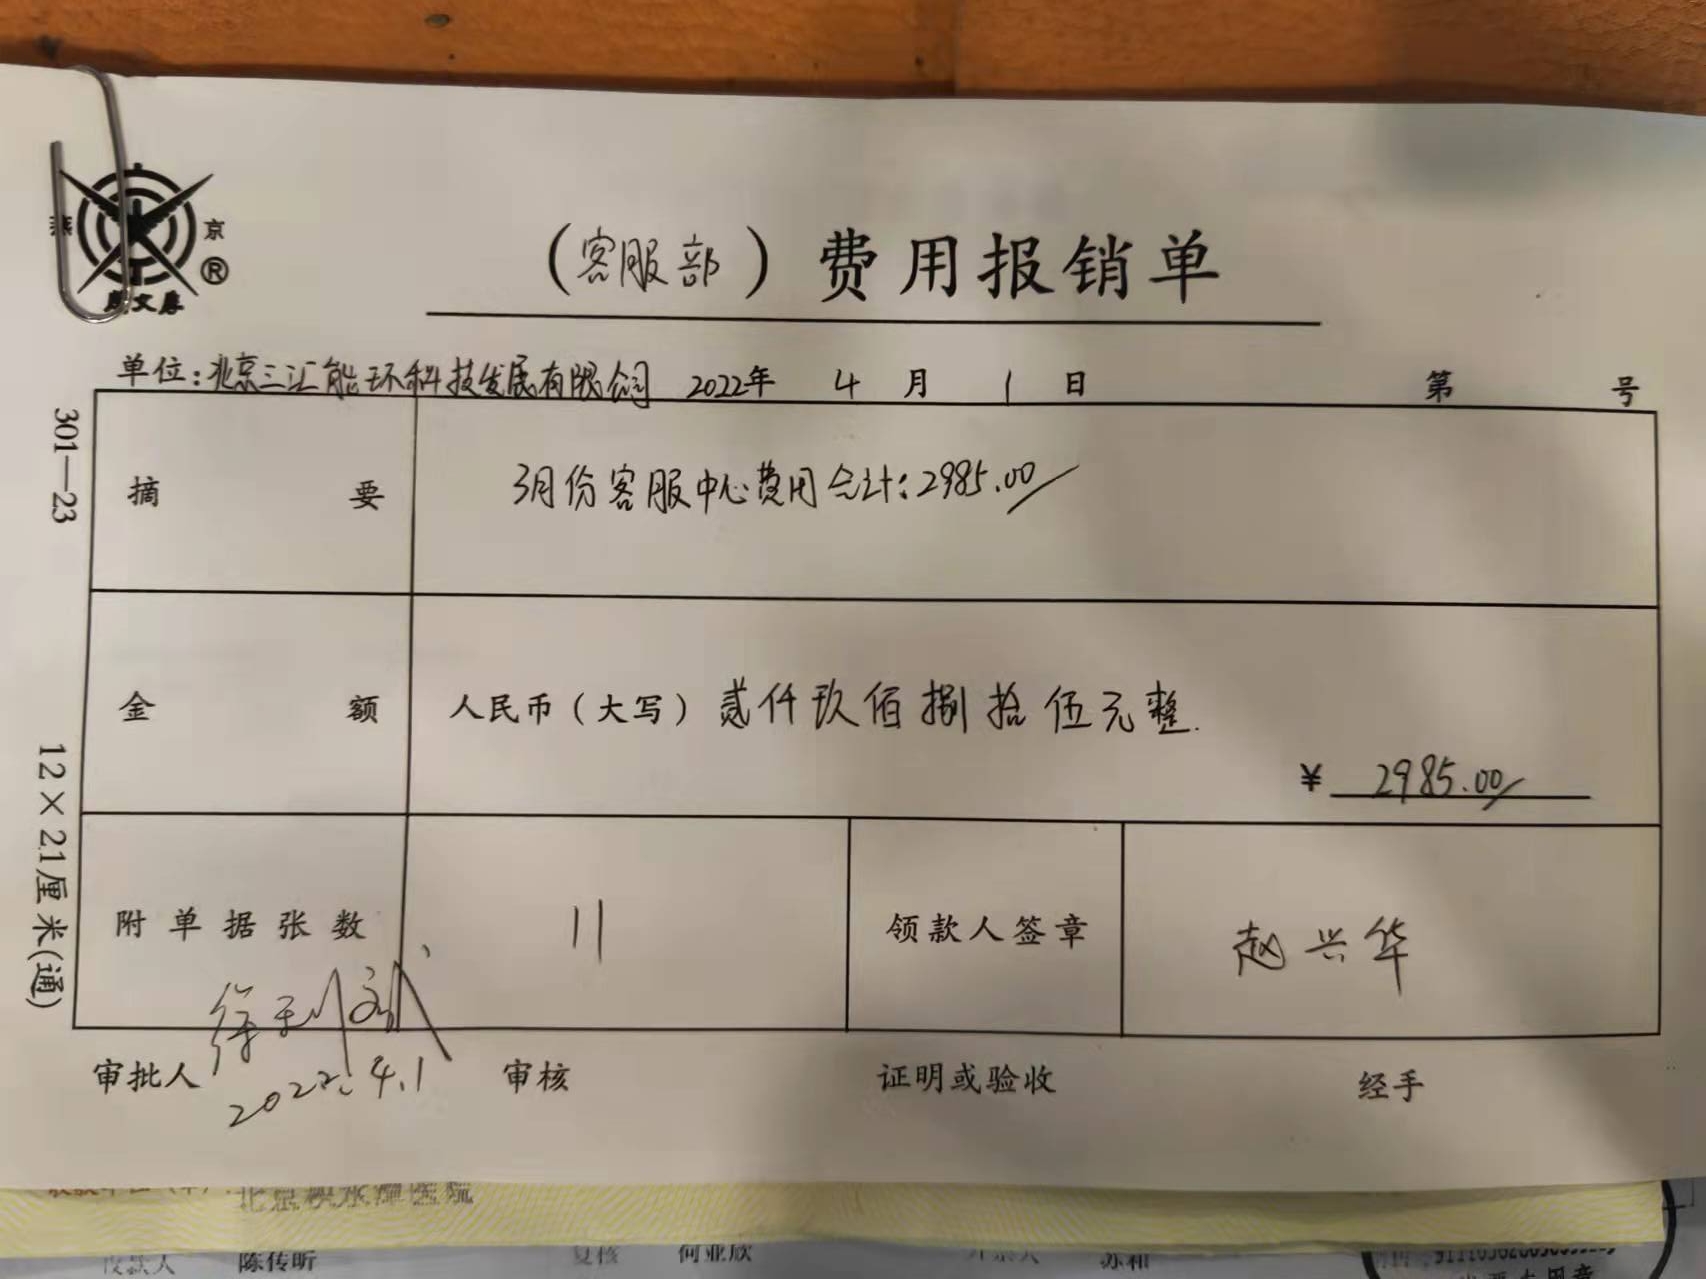 燕 京
®
（客服部）费用报销单
单位：北京三汇能环科技发展有限公司 2022年 4 月 1 日 第 号
301—23
摘 要 3月份客服中心费用合计：2985.00
金 额 人民币（大写）贰仟玖佰捌拾伍元整.
¥ 2985.00
12×21厘米(通)
附单据张数 11 领款人签章 赵兴华
审批人 2022.4.1 审核 证明或验收 经手
收款人 陈传昕 复核 何亚欣 开票人 苏和